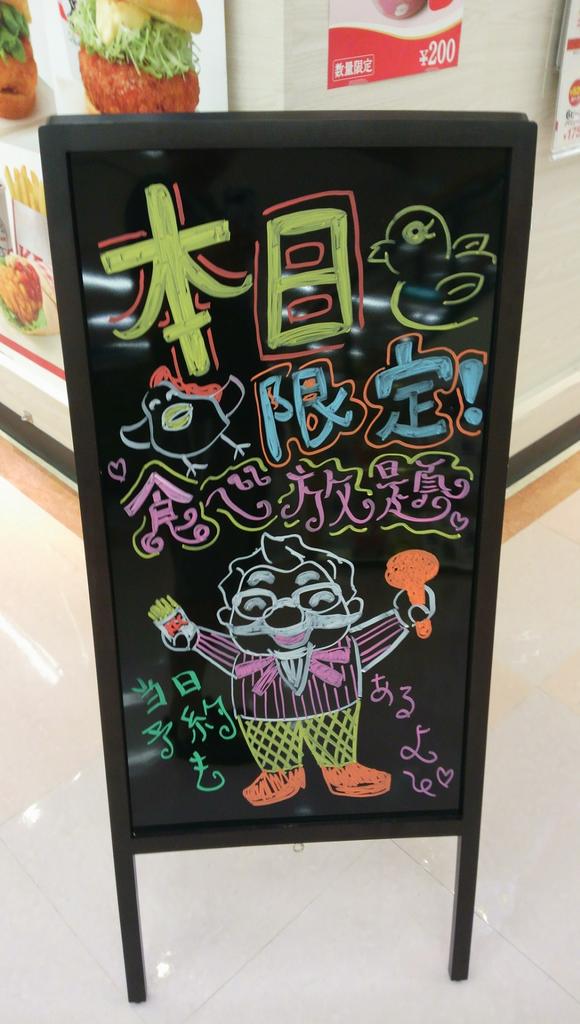 数量限定
¥200
本日
限定!
食べ放題
当日
予約も
あるよ